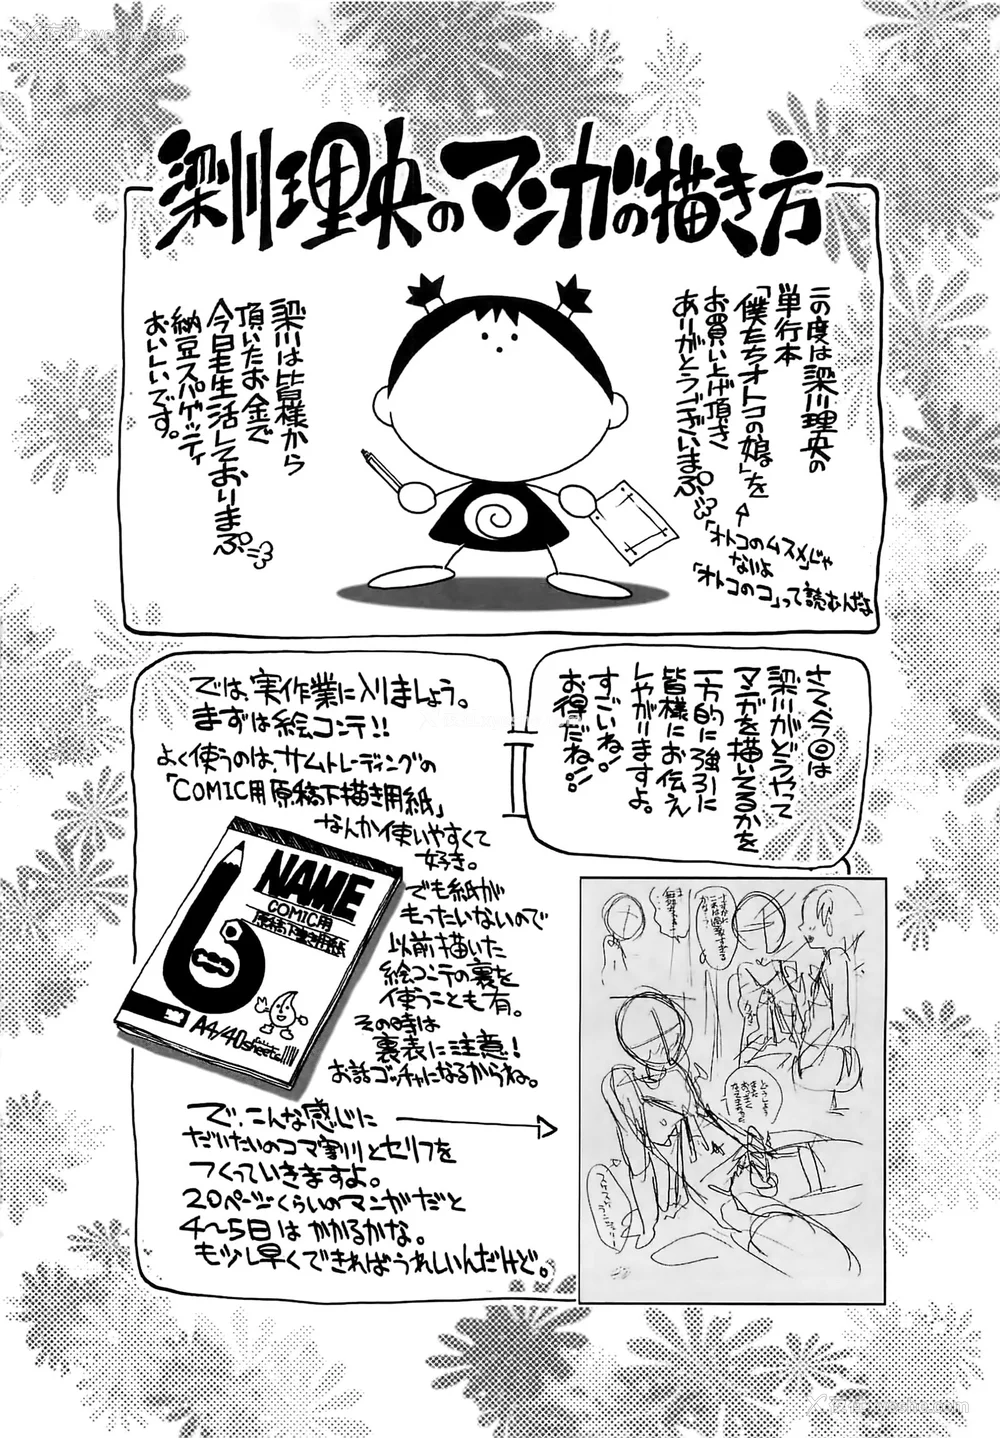 梁川理央のマンガの描き方
この度は梁川理央の
単行本
「僕たちオトコの娘」を
お買い上げ頂き
ありがとうございまぷ
「オトコのムスメ」じゃ
ないよ
「オトコのコ」って読むんだよ
梁川は皆様から
頂いたお金で
今日も生活しておりまぷ
納豆スパゲッティ
おいしいです。
さて、今回は
梁川がどうやって
マンガを描いてるかを
一方的に強引に
皆様にお伝え
しやがりますよ。
すごいね!
お得だね!!
では、実作業に入りましょう。
まずは絵コンテ!!
よく使うのは、サムトレーディングの
「COMIC用原稿下描き用紙」
なんか使いやすくて
好き。
でも紙が
もったいないので
以前描いた
絵コンテの裏を
使うことも有。
その時は
裏表に注意!
お話ゴッチャになるからね。
NAME
COMIC用
原稿下書き用紙
A4/40sheets
で、こんな感じに
だいたいのコマ割りとセリフを
つくっていきますよ。
20ページくらいのマンガだと
4〜5日はかかるかな。
もう少し早くできればうれしいんだけど。